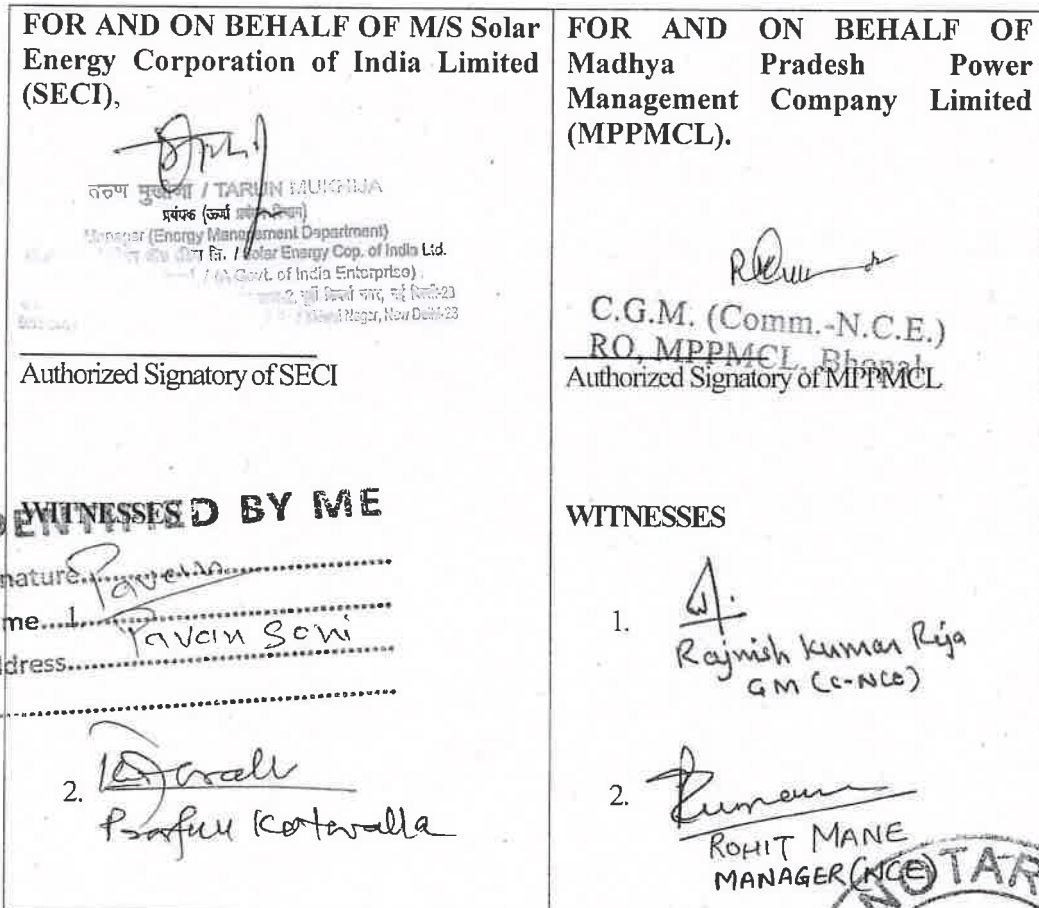 FOR AND ON BEHALF OF M/S Solar
Energy Corporation of India Limited
(SECI),
तरुण मुखीजा / TARUN MUKHIJA
प्रबंधक (ऊर्जा
Manager (Energy Management Department)
लि. / Solar Energy Cop. of India Ltd.
/ (A Govt. of India Enterprise)
नगर, नई दिल्ली-23
Nagar, New Delhi-23
Authorized Signatory of SECI
WITNESSES
DENTIFIED BY ME
nature Pavan
me 1.
Pavan Soni
dress
2.
Kotavalla
FOR AND ON BEHALF OF
Madhya Pradesh Power
Management Company Limited
(MPPMCL).
C.G.M. (Comm.-N.C.E.)
RO, MPPMCL, Bhopal
Authorized Signatory of MPPMCL
WITNESSES
1.
Rajnish Kumar Reja
GM (C-NCE)
2. Kumar
ROHIT MANE
MANAGER (NCE)
NOTAR